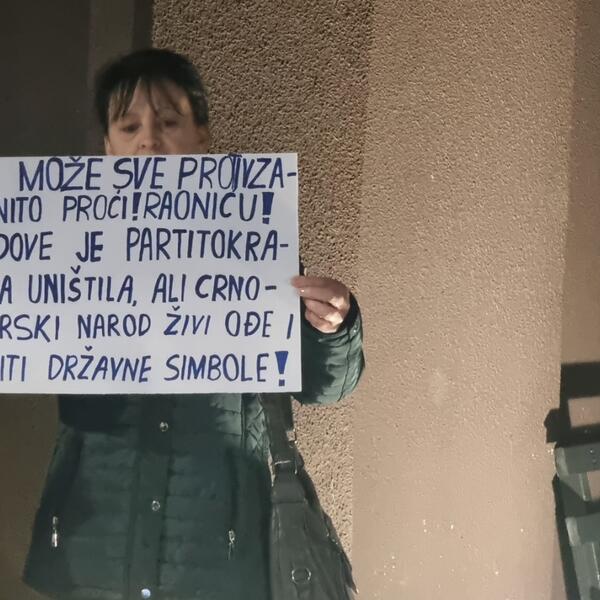 MOŽE SVE PROTIVZA-
NITO PROĆI! RAONIĆU!
DOVE JE PARTITOKRA-
A UNIŠTILA, ALI CRNO-
RSKI NAROD ŽIVI OĐE I
ITI DRŽAVNE SIMBOLE!